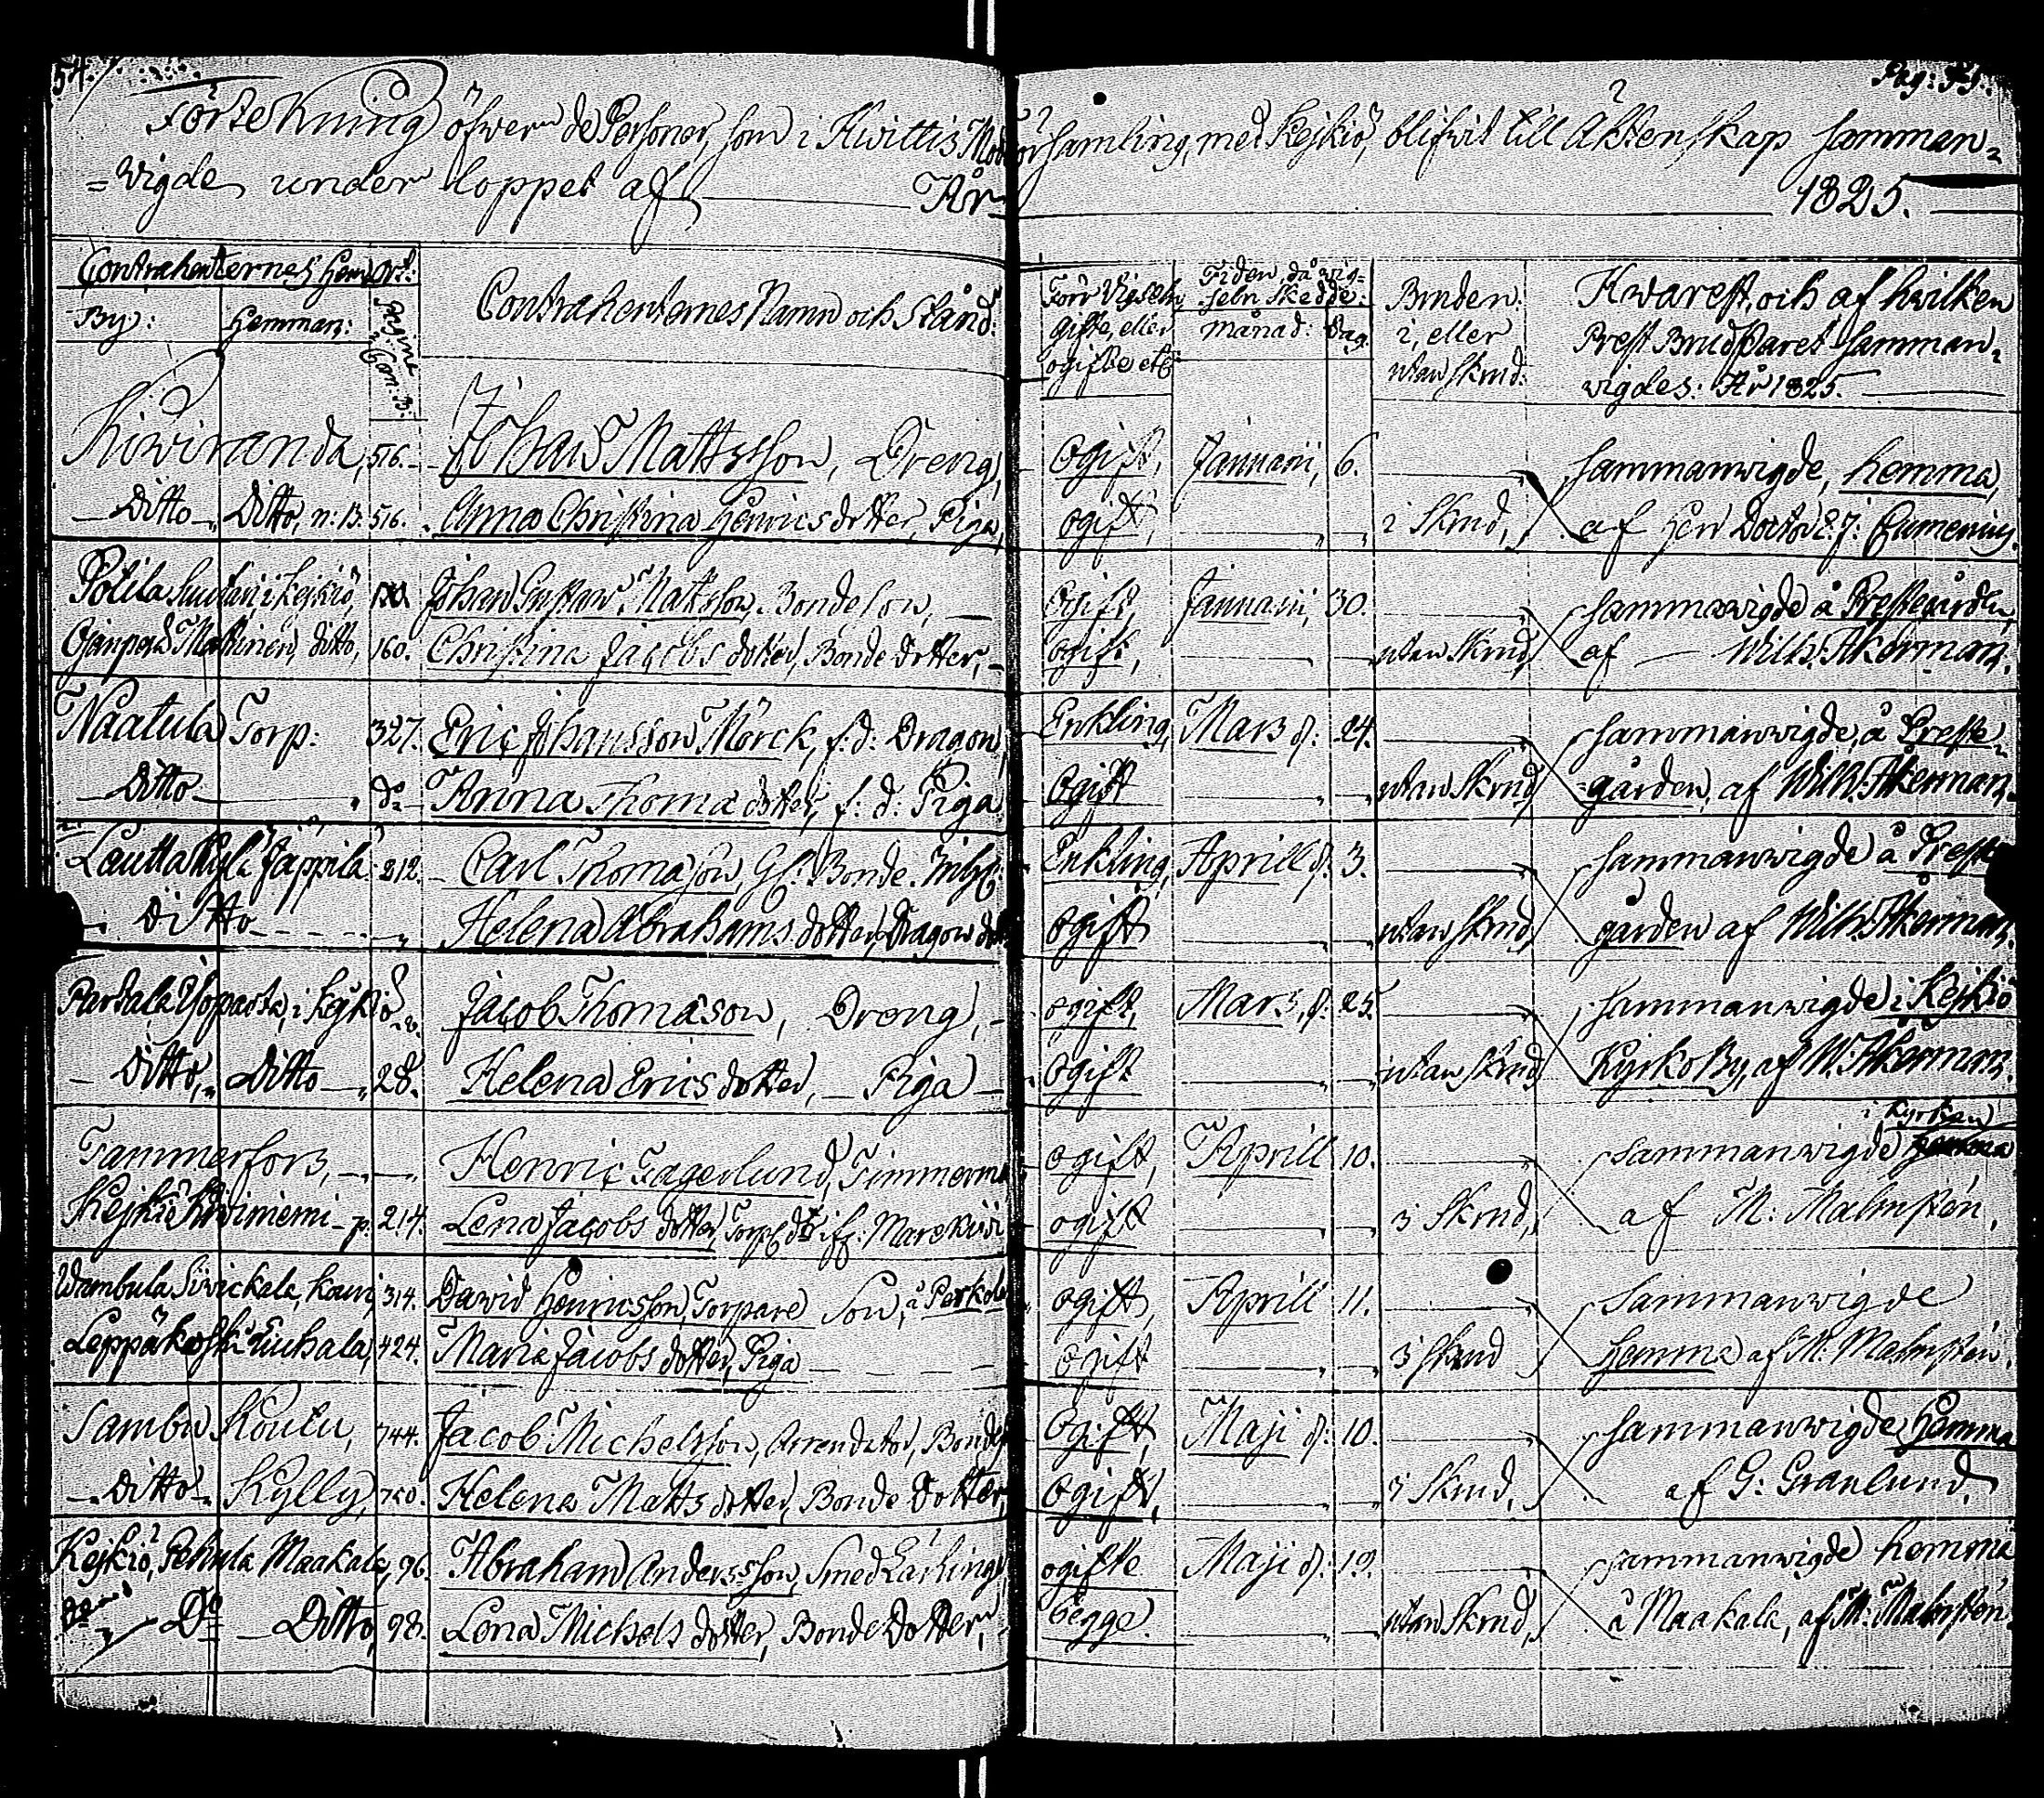 54.
Pag: 
Förtekning öfwer de Personer, som i Hwittis Moder församling, med Kejkiö, blifvit till Äktenskap samman=
=wigde under loppet af År 1825.
Contrahenternes Hem Ort:
By: Hemman: Pagina
Contrahenternes Namn och Stånd:
Förr Vigseln gifte, eller ogifte etc
Tiden, då wigseln skedde:
Månad: Dag.
Bruden: i, eller utan Skrud:
Hwarest, och af hwilken
Prest BrudParet Samman=
wigdes: År 1825.
Kiwiranda, 516. Johan Mattsson, Dreng, Ogift, Januarii, 6. Sammanwigde, hemma,
Ditto Ditto, n: 13. 516. Anna Christina Henricsdotter, Piga, ogift, i Skrud, af Herr Doctor
i Kejkiö, Johan Gustav Mattsson, Bonde Son, Ogift, Januarii, 30. Sammanwigde å Prestegården,
Mattinen, ditto, 160. Christina Jacobs dotter, Bonde Dotter, ogift, utan Skrud, af Wilh: Åkerman.
Naatula Torp: 327. Eric Johansson Mörck, f: d: Dragon, Enkling, Mars d: 24. Sammanwigde, å Preste=
Ditto do Anna Thomæ dotter, f: d: Piga Ogift utan Skrud =gården, af Wilh: Åkerman.
Lauttakylä Jäppilä 212. Carl Thomason, Gl: Bonde. Enkling, Aprill d: 3. Sammanwigde å Preste
Ditto Helena Abrahams dotter, Dragon dot ogift utan Skrud gården af Wilh: Åkerman.
i Kejkiö Jacob Thomason, Dreng, ogift, Mars, d: 25. Sammanwigde i Kejkiö
Ditto, Ditto 28. Helena Erics dotter, Piga ogift utan Skrud KyrkoBy, af W: Åkerman.
i Kyrkan
Tammerfors, Henric Fagerlund, Timmerma ogift, Aprill 10. Sammanwigde
Kejkiö Kiviniemi p: 214. Lena Jacobs dotter, ogift i Skrud, af M: Malmstén.
Wambula Sivickala, 314. David Henricsson, Torpare Son, å ogift, Aprill 11. Sammanwigde
Leppäkoski 424. Maria Jacobs dotter, Piga ogift i Skrud Hemma af M: Malmstén.
Sambu Koulu, 744. Jacob Michelsson, Arrendator, Bonde Ogift, Maji d: 10. Sammanwigde Hemma
Ditto Kylly, 750. Helena Matts dotter, Bonde Dotter Ogift, i Skrud, af G: Granlund.
Kejkiö, Pehula Maakala, 96. Abraham Andersson, Smed Lärling, ogifte Maji d: 19. Sammanwigde hemma
Do Ditto, 98. Lena Michels dotter, Bonde Dotter, begge. utan Skrud, å Maakala, af M: Malmstén.